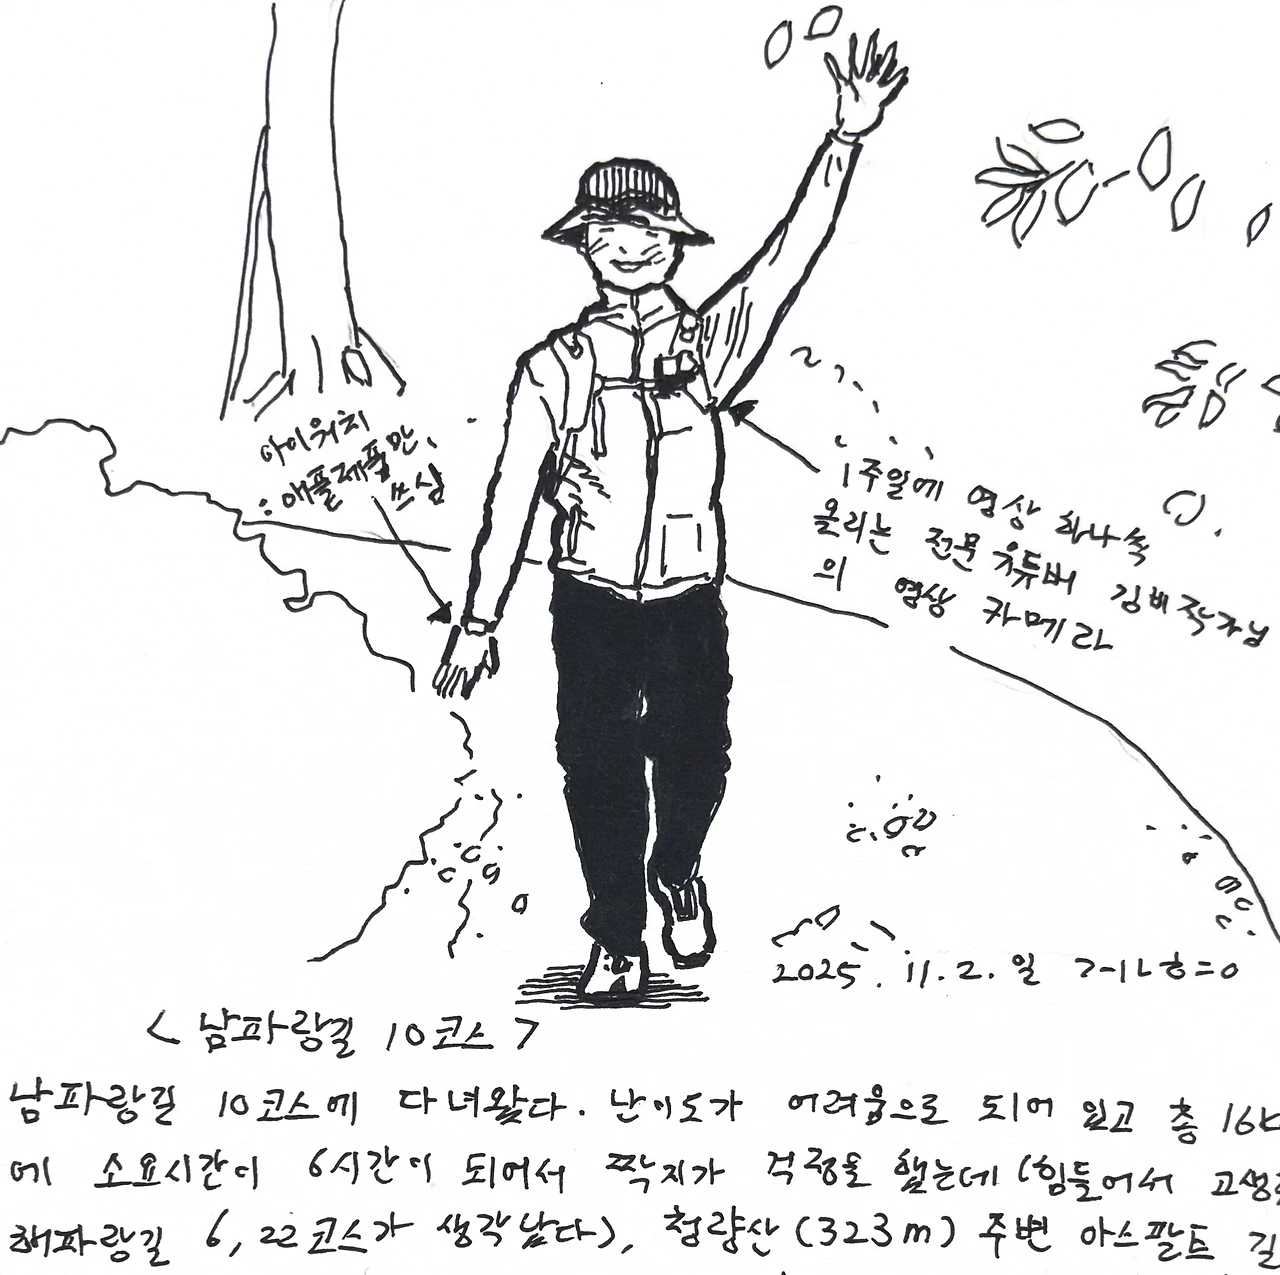 아이워치
: 애플제품만,
쓰심
1주일에 영상 하나씩
올리는 전문 유튜버 김배작가님
의 영상 카메라
2025. 11. 2. 일
< 남파랑길 10코스 >
남파랑길 10코스에 다녀왔다. 난이도가 어려움으로 되어 있고 총 16k
에 소요시간이 6시간이 되어서 짝지가 걱정을 했는데 (힘들어서 고생
해파랑길 6, 22코스가 생각났다), 청량산 (323m) 주변 아스팔트 길